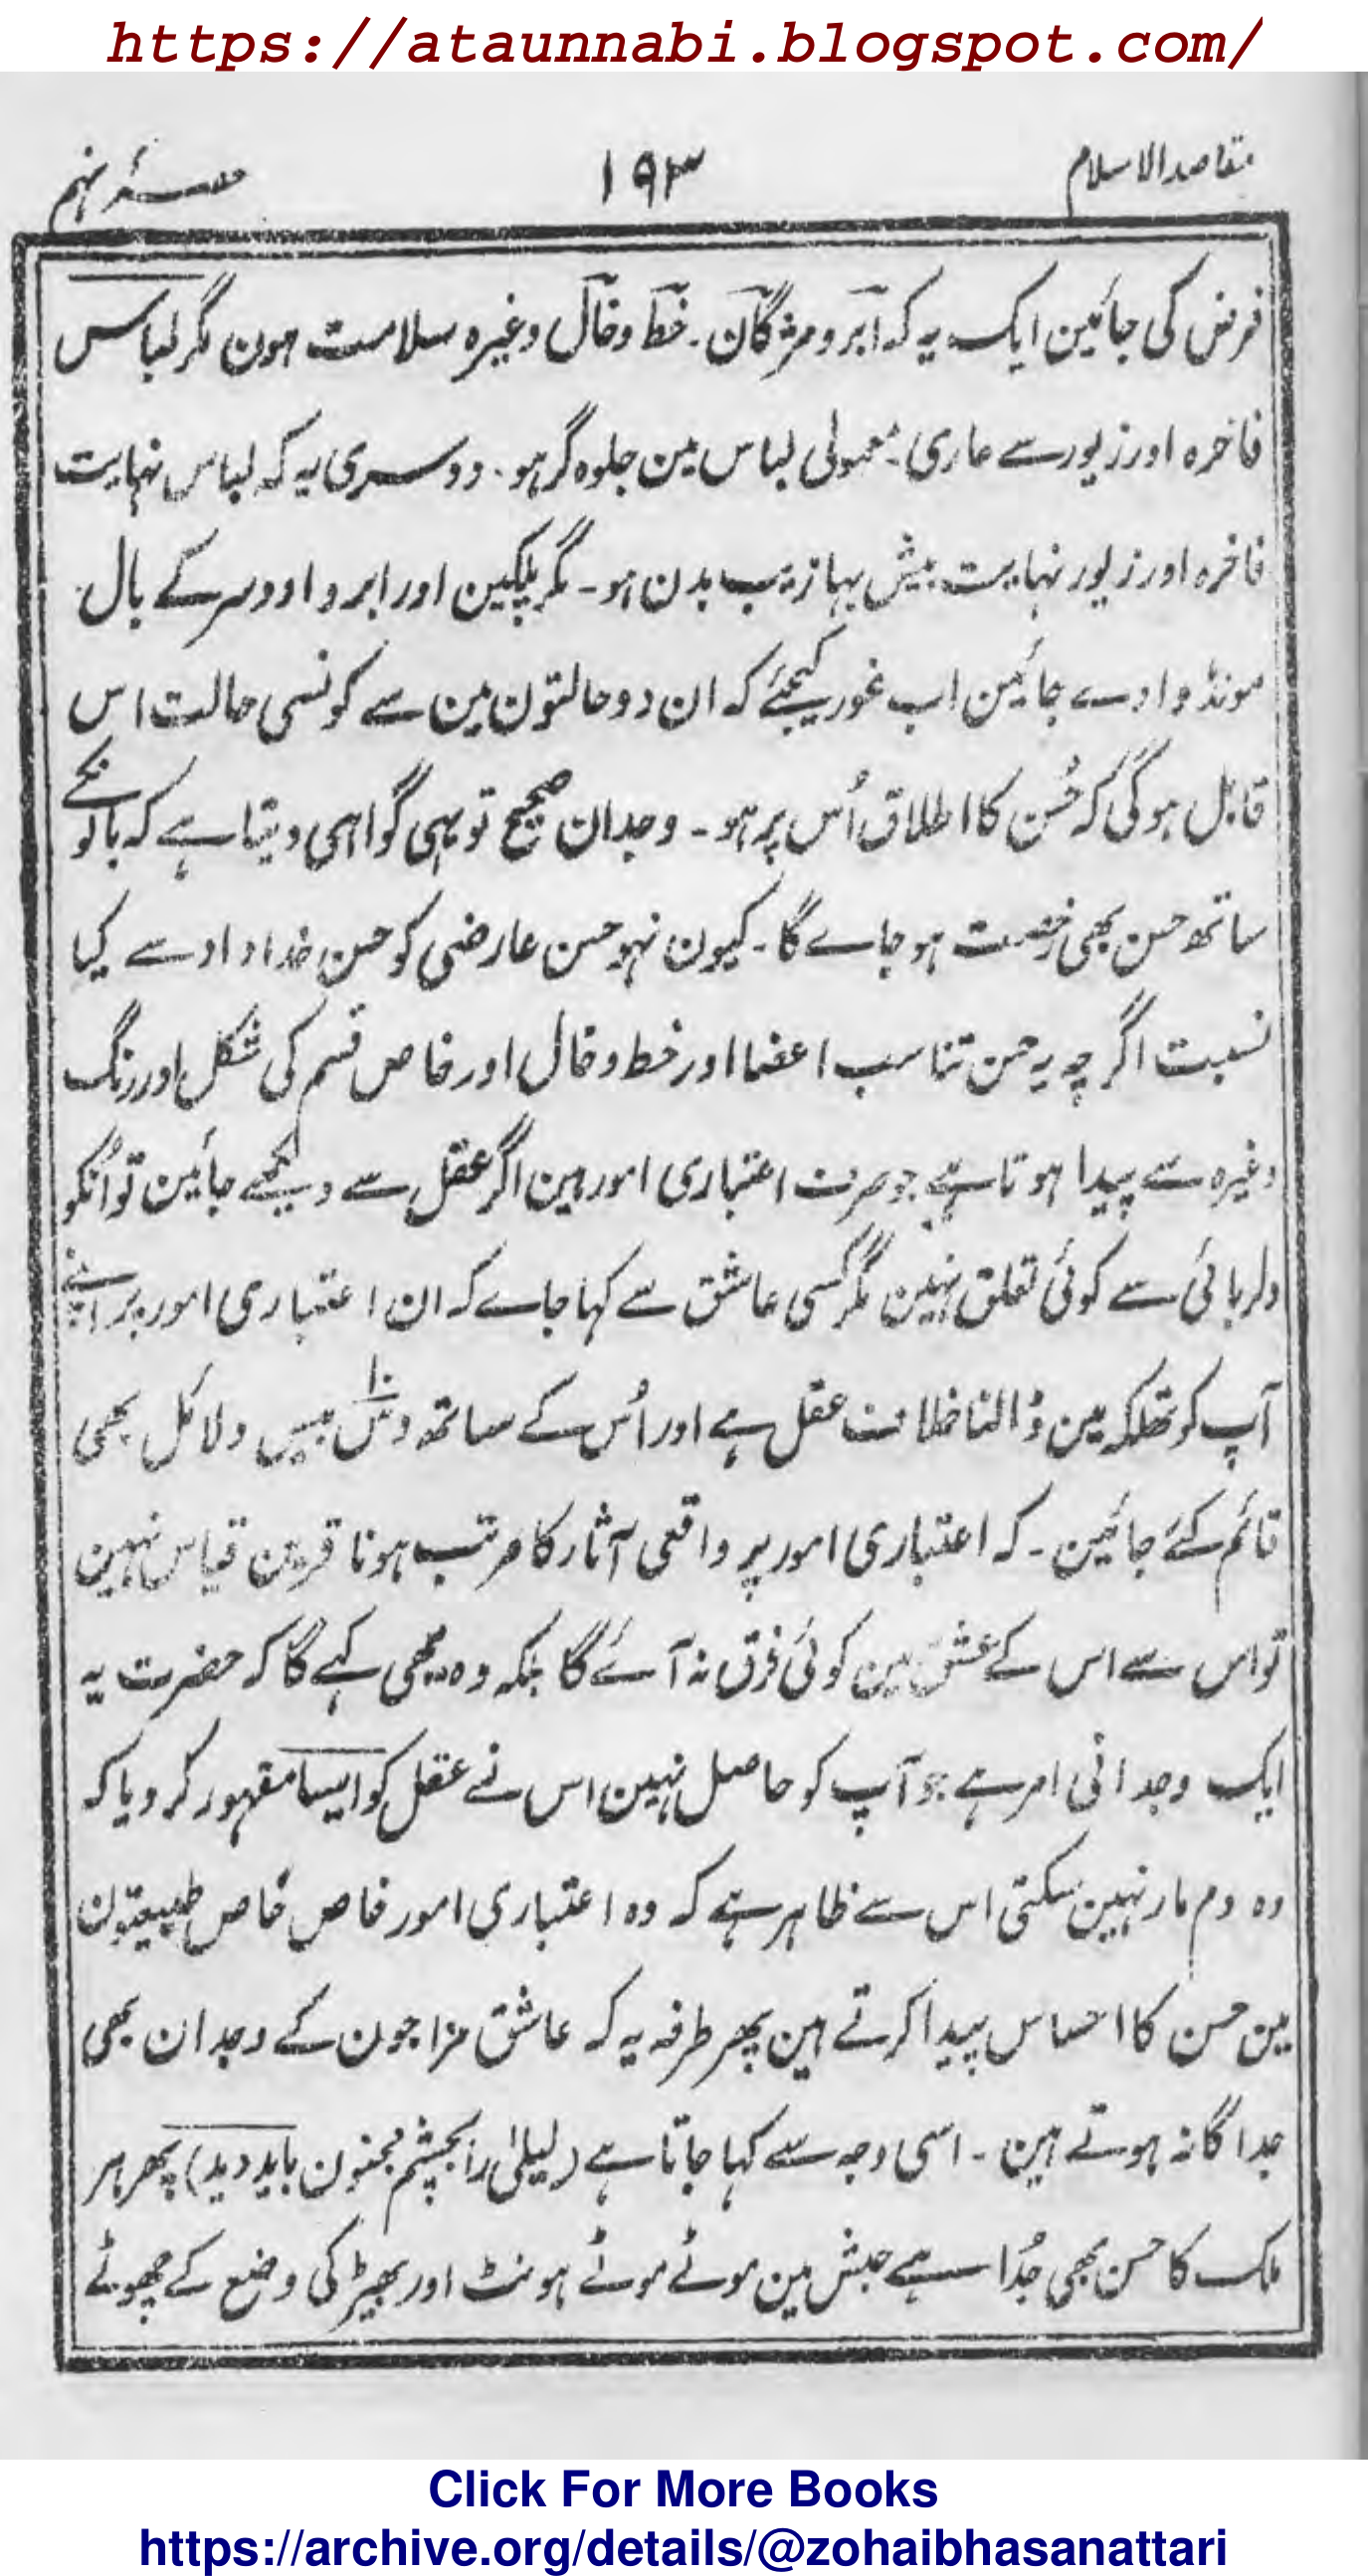 https://ataunnabi.blogspot.com/
مقاصد الاسلام ۱۹۳ حصۂ نہم
فرض کی جائین ایک یہ کہ ابرو مژگان ۔ خط وخال وغیرہ سلامت ہون مگر لباس
فاخرہ اور زیور سے عاری ۔ معمولی لباس مین جلوہ گر ہو ۔ دوسری یہ کہ لباس نہایت
فاخرہ اور زیور نہایت بیش بہا زیب بدن ہو ۔ مگر پلکین اور ابرو اور سر کے بال
مونڈوا دے جائین اب غور کیجئے کہ ان دو حالتون مین سے کونسی حالت اس
قابل ہوگی کہ حُسن کا اطلاق اُس پر ہو ۔ وجدان صحیح تو یہی گواہی دیتا ہے کہ بالونکے
ساتھ حسن بھی رخصت ہو جاے گا ۔ کیون نہو حسن عارضی کو حسن خدا داد سے کیا
نسبت اگرچہ یہ حسن تناسب اعضا اور خط وخال اور خاص قسم کی شکل اور رنگ
وغیرہ سے پیدا ہوتا ہے جو صرف اعتباری امور ہین اگر عقل سے دیکھے جائین تو اُنکو
دلربائی سے کوئی تعلق نہین مگر کسی عاشق سے کہا جاے کہ ان اعتباری امور پر اپنے
آپ کو تھلکہ مین ڈالنا خلاف عقل ہے اور اُس کے ساتھ دس بیس دلائل بھی
قائم کئے جائین ۔ کہ اعتباری امور پر واقعی آثار کا مرتب ہونا قرین قیاس نہین
تو اس سے اس کے عشق مین کوئی فرق نہ آئے گا بلکہ وہ یہی کہے گا کہ حضرت یہ
ایک وجدانی امر ہے جو آپ کو حاصل نہین اس نے عقل کو ایسا مقہور کر دیا کہ
وہ دم مار نہین سکتی اس سے ظاہر ہے کہ وہ اعتباری امور خاص خاص طبیعتون
مین حسن کا احساس پیدا کرتے ہین پھر طرفہ یہ کہ عاشق مزاجون کے وجدان بھی
جداگانہ ہوتے ہین ۔ اسی وجہ سے کہا جاتا ہے (لیلیٰ را بچشم مجنون باید دید) پھر ہر
ملک کا حسن بھی جُدا ہے حبش مین موٹے موٹے ہونٹ اور بھیڑ کی وضع کے چھوٹے
Click For More Books
https://archive.org/details/@zohaibhasanattari